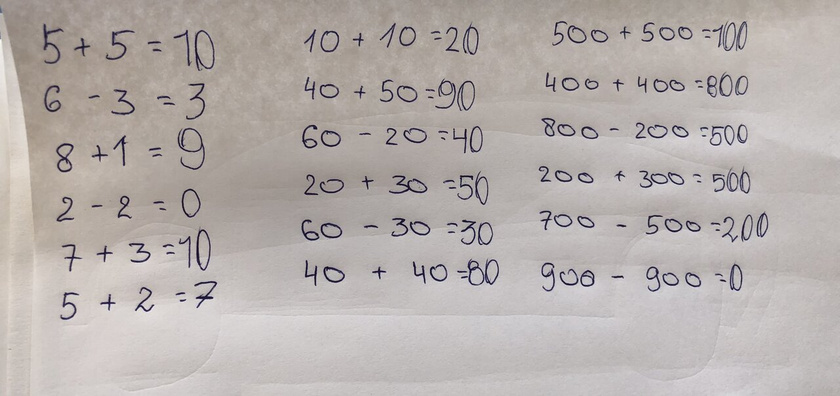 5 + 5 = 10
6 - 3 = 3
8 + 1 = 9
2 - 2 = 0
7 + 3 = 10
5 + 2 = 7
10 + 10 = 20
40 + 50 = 90
60 - 20 = 40
20 + 30 = 50
60 - 30 = 30
40 + 40 = 80
500 + 500 = 100
400 + 400 = 800
800 - 200 = 500
200 + 300 = 500
700 - 500 = 200
900 - 900 = 0